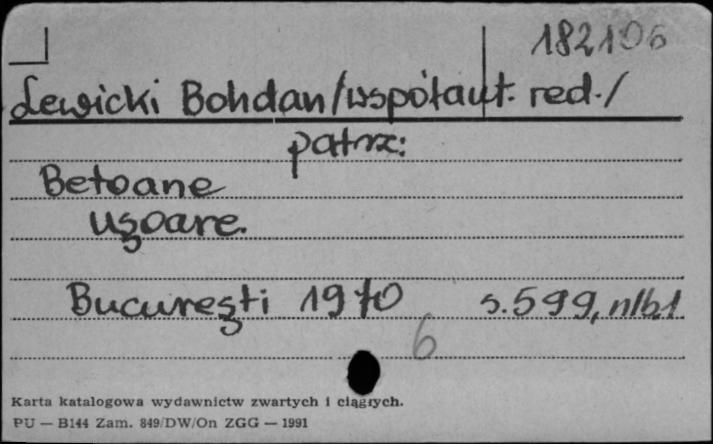 182106
Lewicki Bohdan/współaut. red./
patrz:
Betoane
uşoare.
Bucureşti 1970 s.599, nlb1
6
Karta katalogowa wydawnictw zwartych i ciągłych.
PU — B144 Zam. 849/DW/On ZGG — 1991